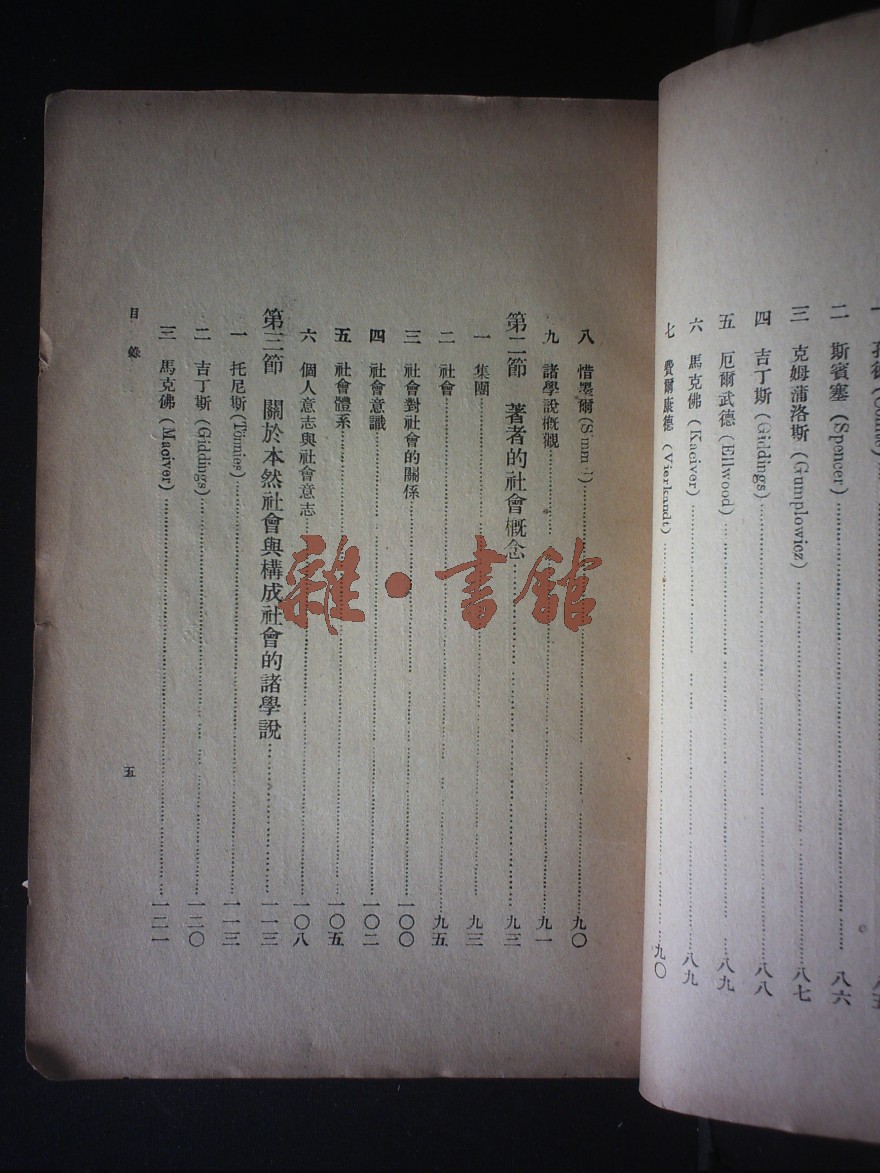 二 斯賓塞 (Spencer) 八六
三 克姆蒲洛斯 (Gumplowicz) 八七
四 吉丁斯 (Giddings) 八八
五 厄爾武德 (Ellwood) 八九
六 馬克佛 (Kaciver) 八九
七 費爾康德 (Vierkandt) 九〇
八 惜墨爾 九〇
九 諸學說概觀 九一
第二節 著者的社會概念 九三
一 集團 九三
二 社會 九五
三 社會對社會的關係 一〇〇
四 社會意識 一〇二
五 社會體系 一〇五
六 個人意志與社會意志 一〇八
第三節 關於本然社會與構成社會的諸學說 一一三
一 托尼斯 (Tönnies) 一一三
二 吉丁斯 (Giddings) 一二〇
三 馬克佛 (Maciver) 一二一
目錄
五
雜·書館